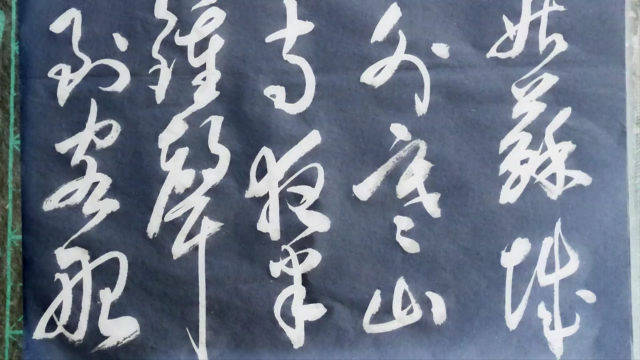 姑蘇城
外寒山
寺夜半
鐘聲
到客船